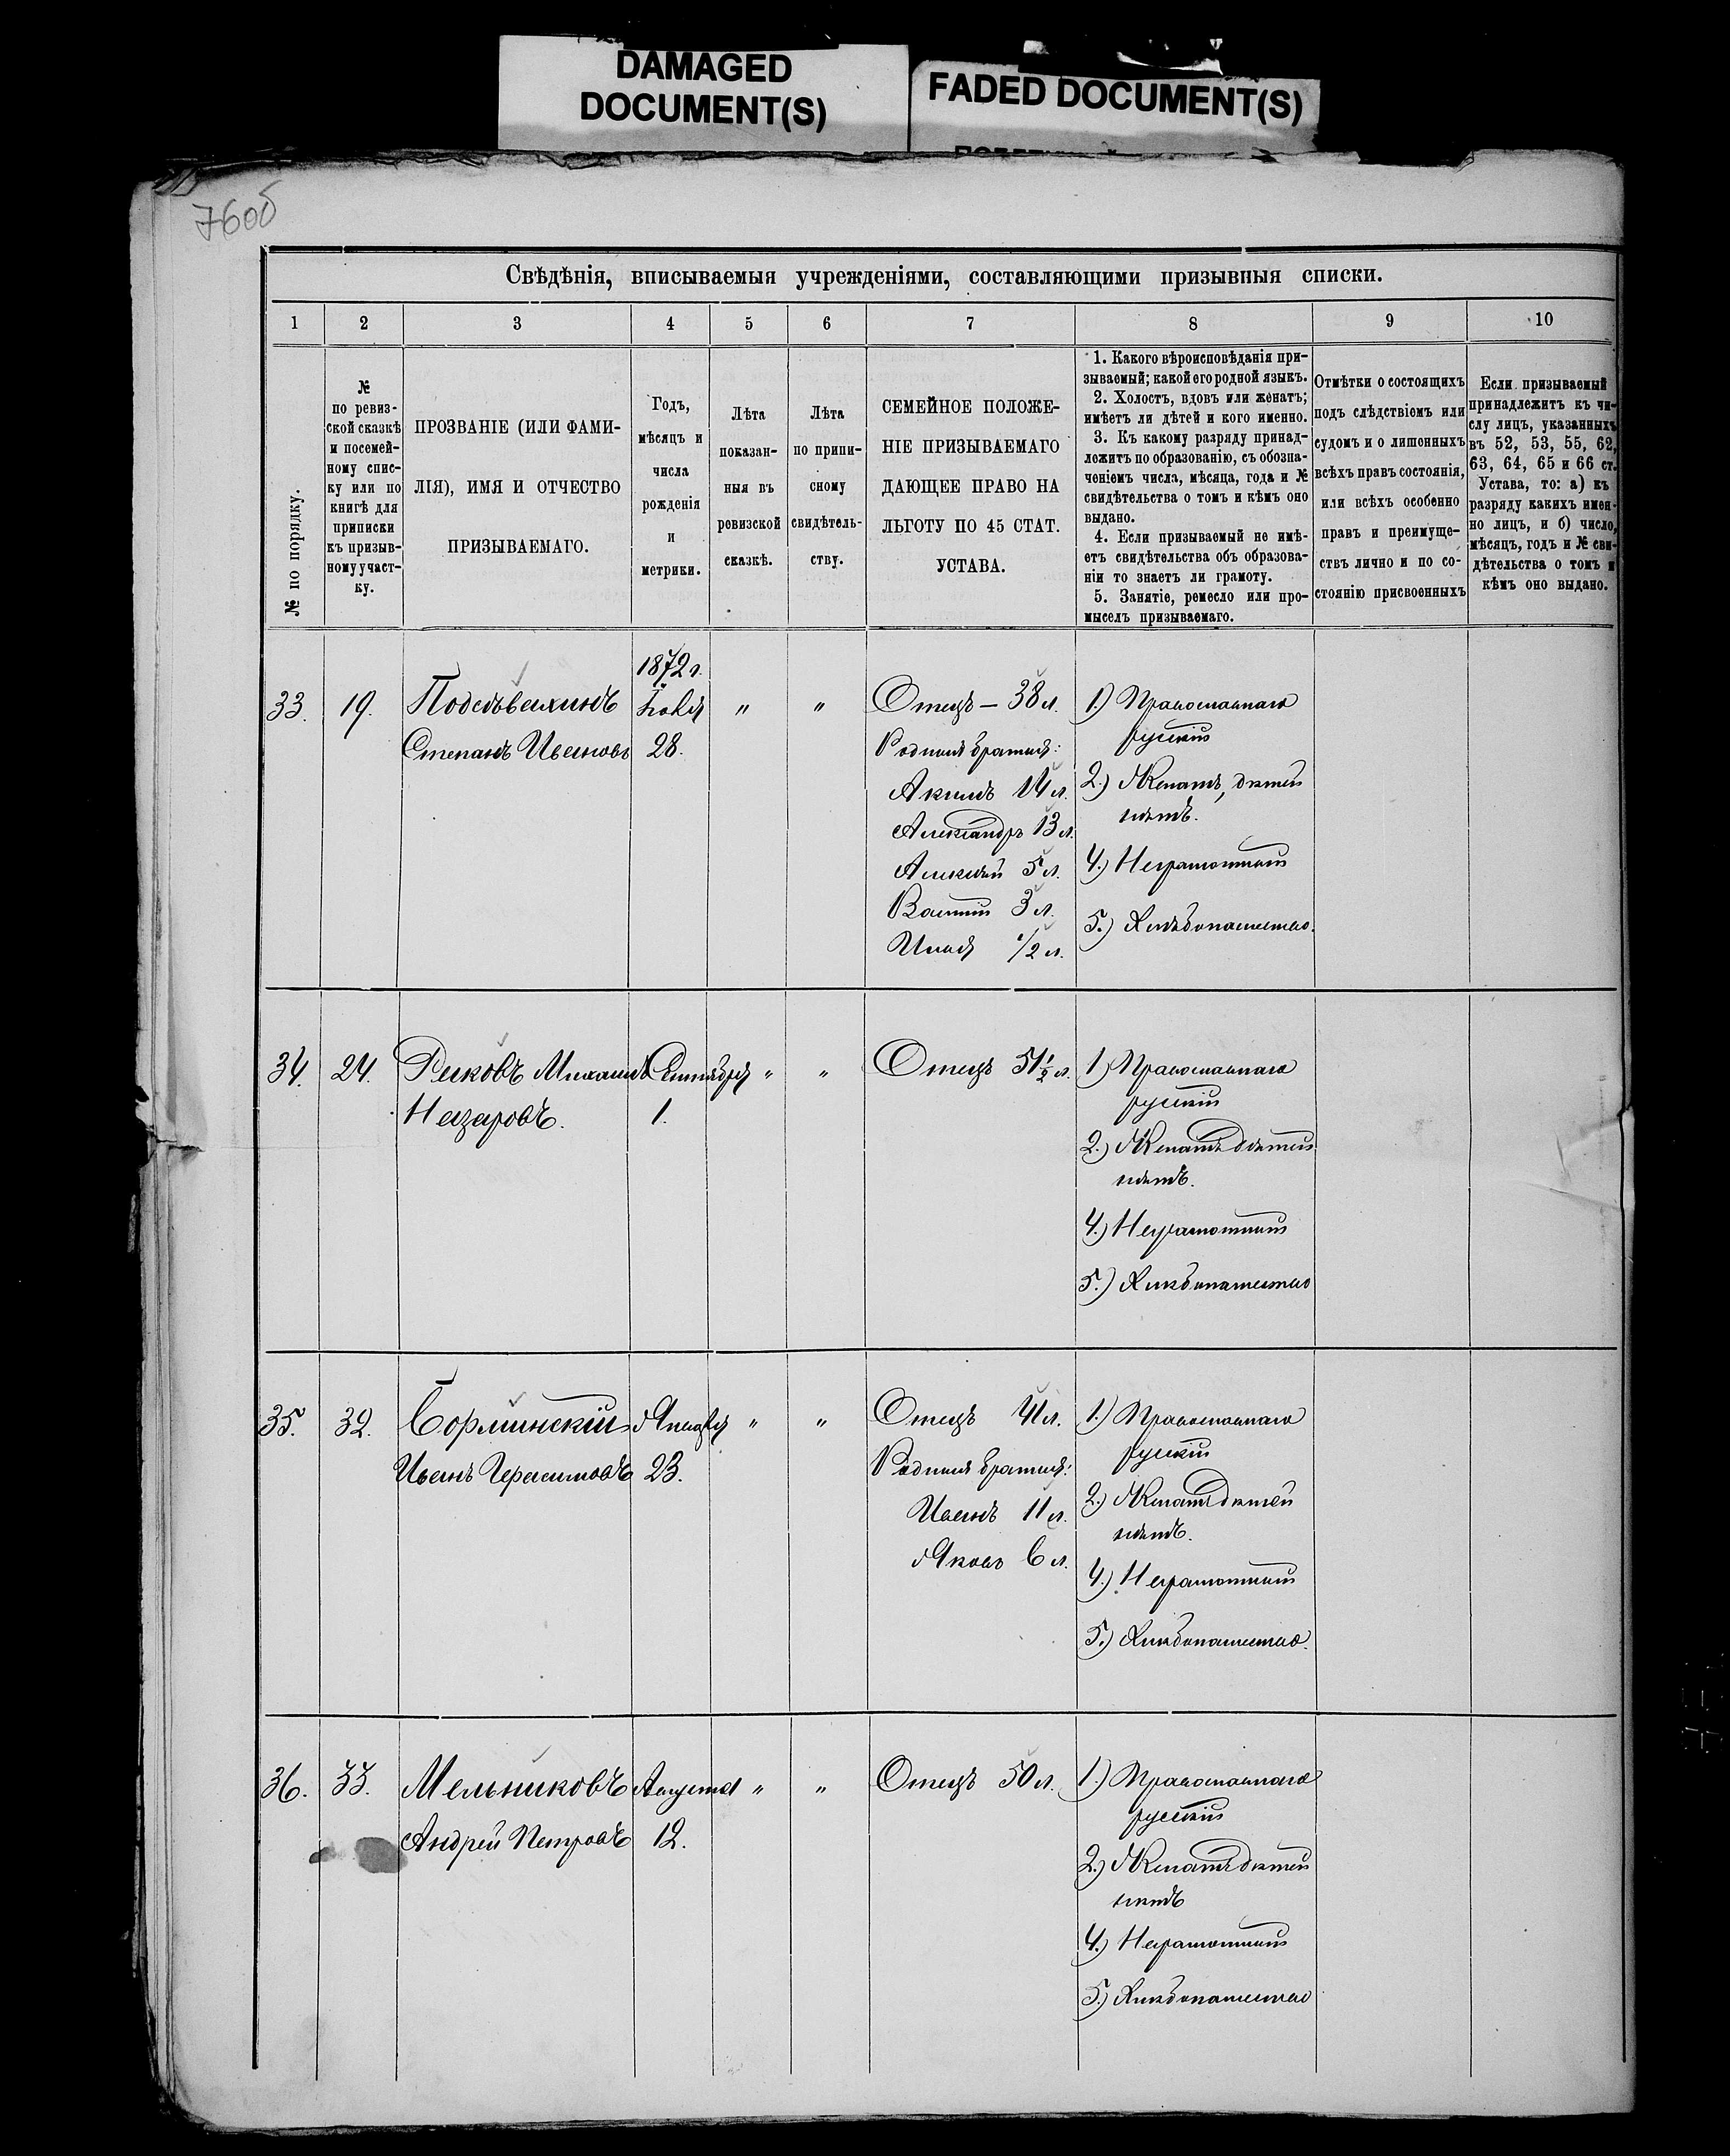 DAMAGED
DOCUMENT(S)
FADED DOCUMENT(S)
76об
Свѣдѣнія, вписываемыя учрежденіями, составляющими призывныя списки.
1 2 3 4 5 6 7 8 9 10
№ по порядку.
№
по ревиз-
ской сказкѣ
и посемей-
ному спис-
ку или по
книгѣ для
приписки
къ призыв-
ному участ-
ку.
ПРОЗВАНІЕ (ИЛИ ФАМИ-
ЛІЯ), ИМЯ И ОТЧЕСТВО
ПРИЗЫВАЕМАГО.
Годъ,
мѣсяцъ и
числа
рожденія
и
метрики.
Лѣта
показан-
ныя въ
ревизской
сказкѣ.
Лѣта
по припи-
сному
свидѣтель-
ству.
СЕМЕЙНОЕ ПОЛОЖЕ-
НІЕ ПРИЗЫВАЕМАГО
ДАЮЩЕЕ ПРАВО НА
ЛЬГОТУ ПО 45 СТАТ.
УСТАВА.
1. Какого вѣроисповѣданія при-
зываемый; какой его родной языкъ.
2. Холостъ, вдовъ или женатъ;
имѣетъ ли дѣтей и кого именно.
3. Къ какому разряду принад-
лежитъ по образованію, съ обозна-
ченіемъ числа, мѣсяца, года и №
свидѣтельства о томъ и кѣмъ оно
выдано.
4. Если призываемый не имѣ-
етъ свидѣтельства объ образова-
ніи то знаетъ ли грамоту.
5. Занятіе, ремесло или про-
мыселъ призываемаго.
Отмѣтки о состоящихъ
подъ слѣдствіемъ или
судомъ и о лишенныхъ
всѣхъ правъ состоянія,
или всѣхъ особенно
правъ и преимуще-
ствъ лично и по со-
стоянію присвоенныхъ
Если призываемый
принадлежитъ къ чи-
слу лицъ, указанныхъ
въ 52, 53, 55, 62,
63, 64, 65 и 66 ст.
Устава, то: а) къ
разряду какихъ имен-
но лицъ, и б) число,
мѣсяцъ, годъ и № сви-
дѣтельства о томъ и
кѣмъ оно выдано.
33. 19.
Степанъ Ивановъ
1872 г.
28.
" "
Отецъ — 38 л.
Родныя братья:
Акимъ 14 л.
Александръ 13 л.
Алексѣй 5 л.
Василій 3 л.
Илья 1/2 л.
1.) Православнаго
русскій
2.) Женатъ, дѣтей
нѣтъ.
4.) Неграмотный
5.) Хлѣбопашество.
34. 24.
Рыковъ Михаилъ
Назаровъ.
Сентября
1.
" "
Отецъ 51 1/2 л.
1.) Православнаго
русскій
2.) Женатъ дѣтей
нѣтъ.
4.) Неграмотный
5.) Хлѣбопашество
35. 32.
Борлинскій
Иванъ Герасимовъ
Января
23.
" "
Отецъ 41 л.
Родныя братья:
Иванъ 11 л.
Яковъ 6 л.
1.) Православнаго
русскій
2.) Женатъ дѣтей
нѣтъ.
4.) Неграмотный
5.) Хлѣбопашество.
36. 33.
Мельниковъ
Андрей Петровъ
Августа
12.
" "
Отецъ 50 л.
1.) Православнаго
русскій
2.) Женатъ дѣтей
нѣтъ
4.) Неграмотный
5.) Хлѣбопашество